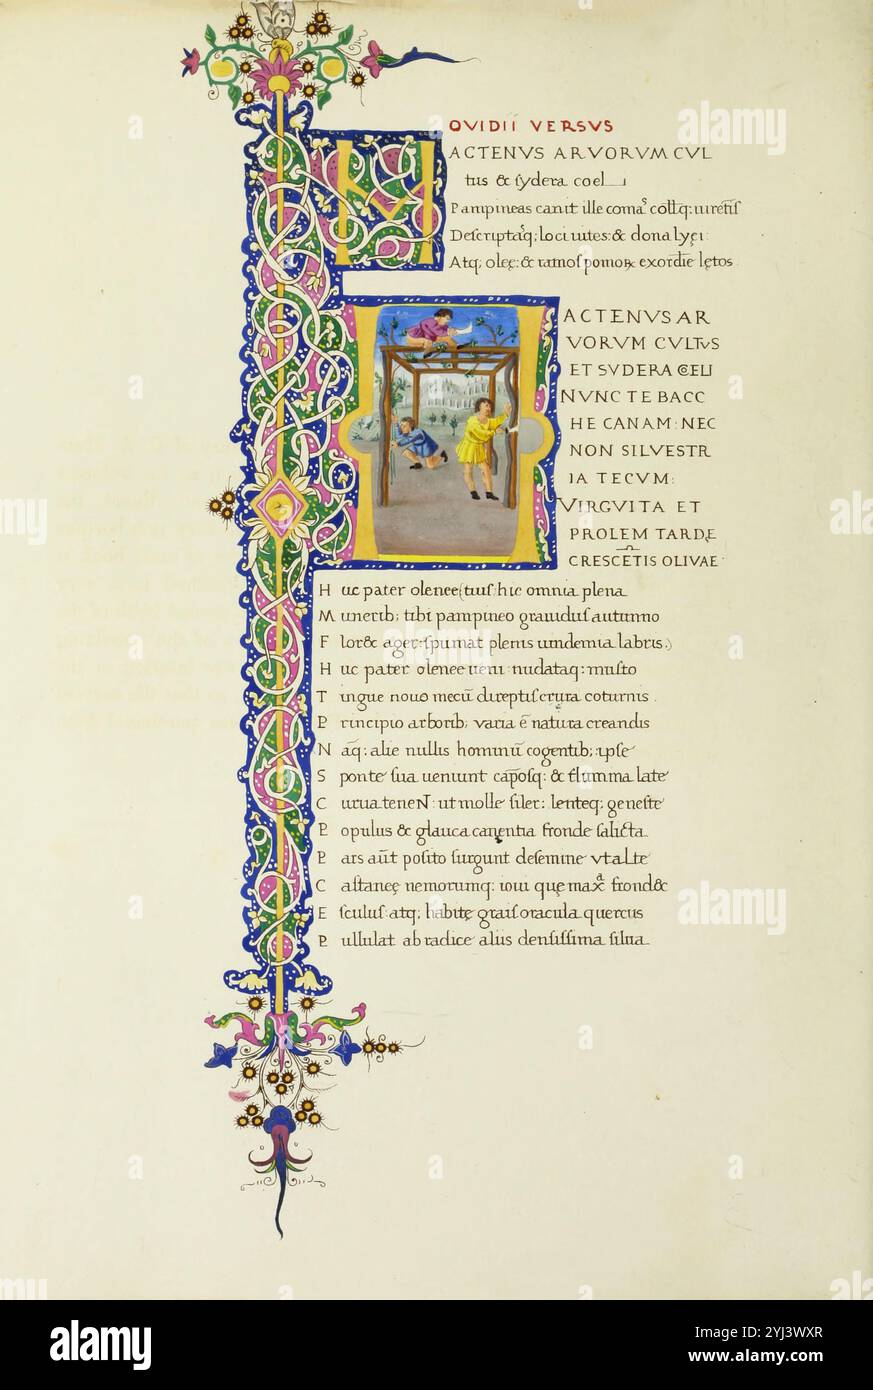 OVIDII VERSVS
HACTENVS ARVORVM CVL
tus & sydera coeli
Pampineas canit ille comas collesq: uirentis
Descriptasq; loci uites: & dona lyęi
Atq; olee: & ramos pomoꝝ ex ordine lętos
HACTENVS AR
VORVM CVLTVS
ET SVDERA COELI
NVNC TE BACC
HE CANAM: NEC
NON SILVESTR
IA TECVM:
VIRGVLTA ET
PROLEM TARDĘ
CRESCETIS OLIVAE
H uc pater olenee (tuis hic omnia plena
M uneribꝫ tibi pampineo grauidus autumno
F lor& ager: spumat plenis uindemia labris.)
H uc pater olenee ueni: nudataq: musto
T ingue nouo mecū direptis crura coturnis.
P rincipio arboribꝫ uaria ē natura creandis
N āq: alie nullis hominū cogentibꝫ ipse
S ponte sua ueniunt cāposq: & flumina late
C urua teneN: ut molle siler: lenteq: geneste
P opulus & glauca canentia fronde salicta.
P ars aūt posito surgunt de semine vt alte
C astaneę nemorumq: ioui quę maxīa frond&
E sculus: atq; habitę grais oracula quercus
P ullulat ab radice aliis densissima silua
alamy
Image ID: 2YJ3WXR
www.alamy.com